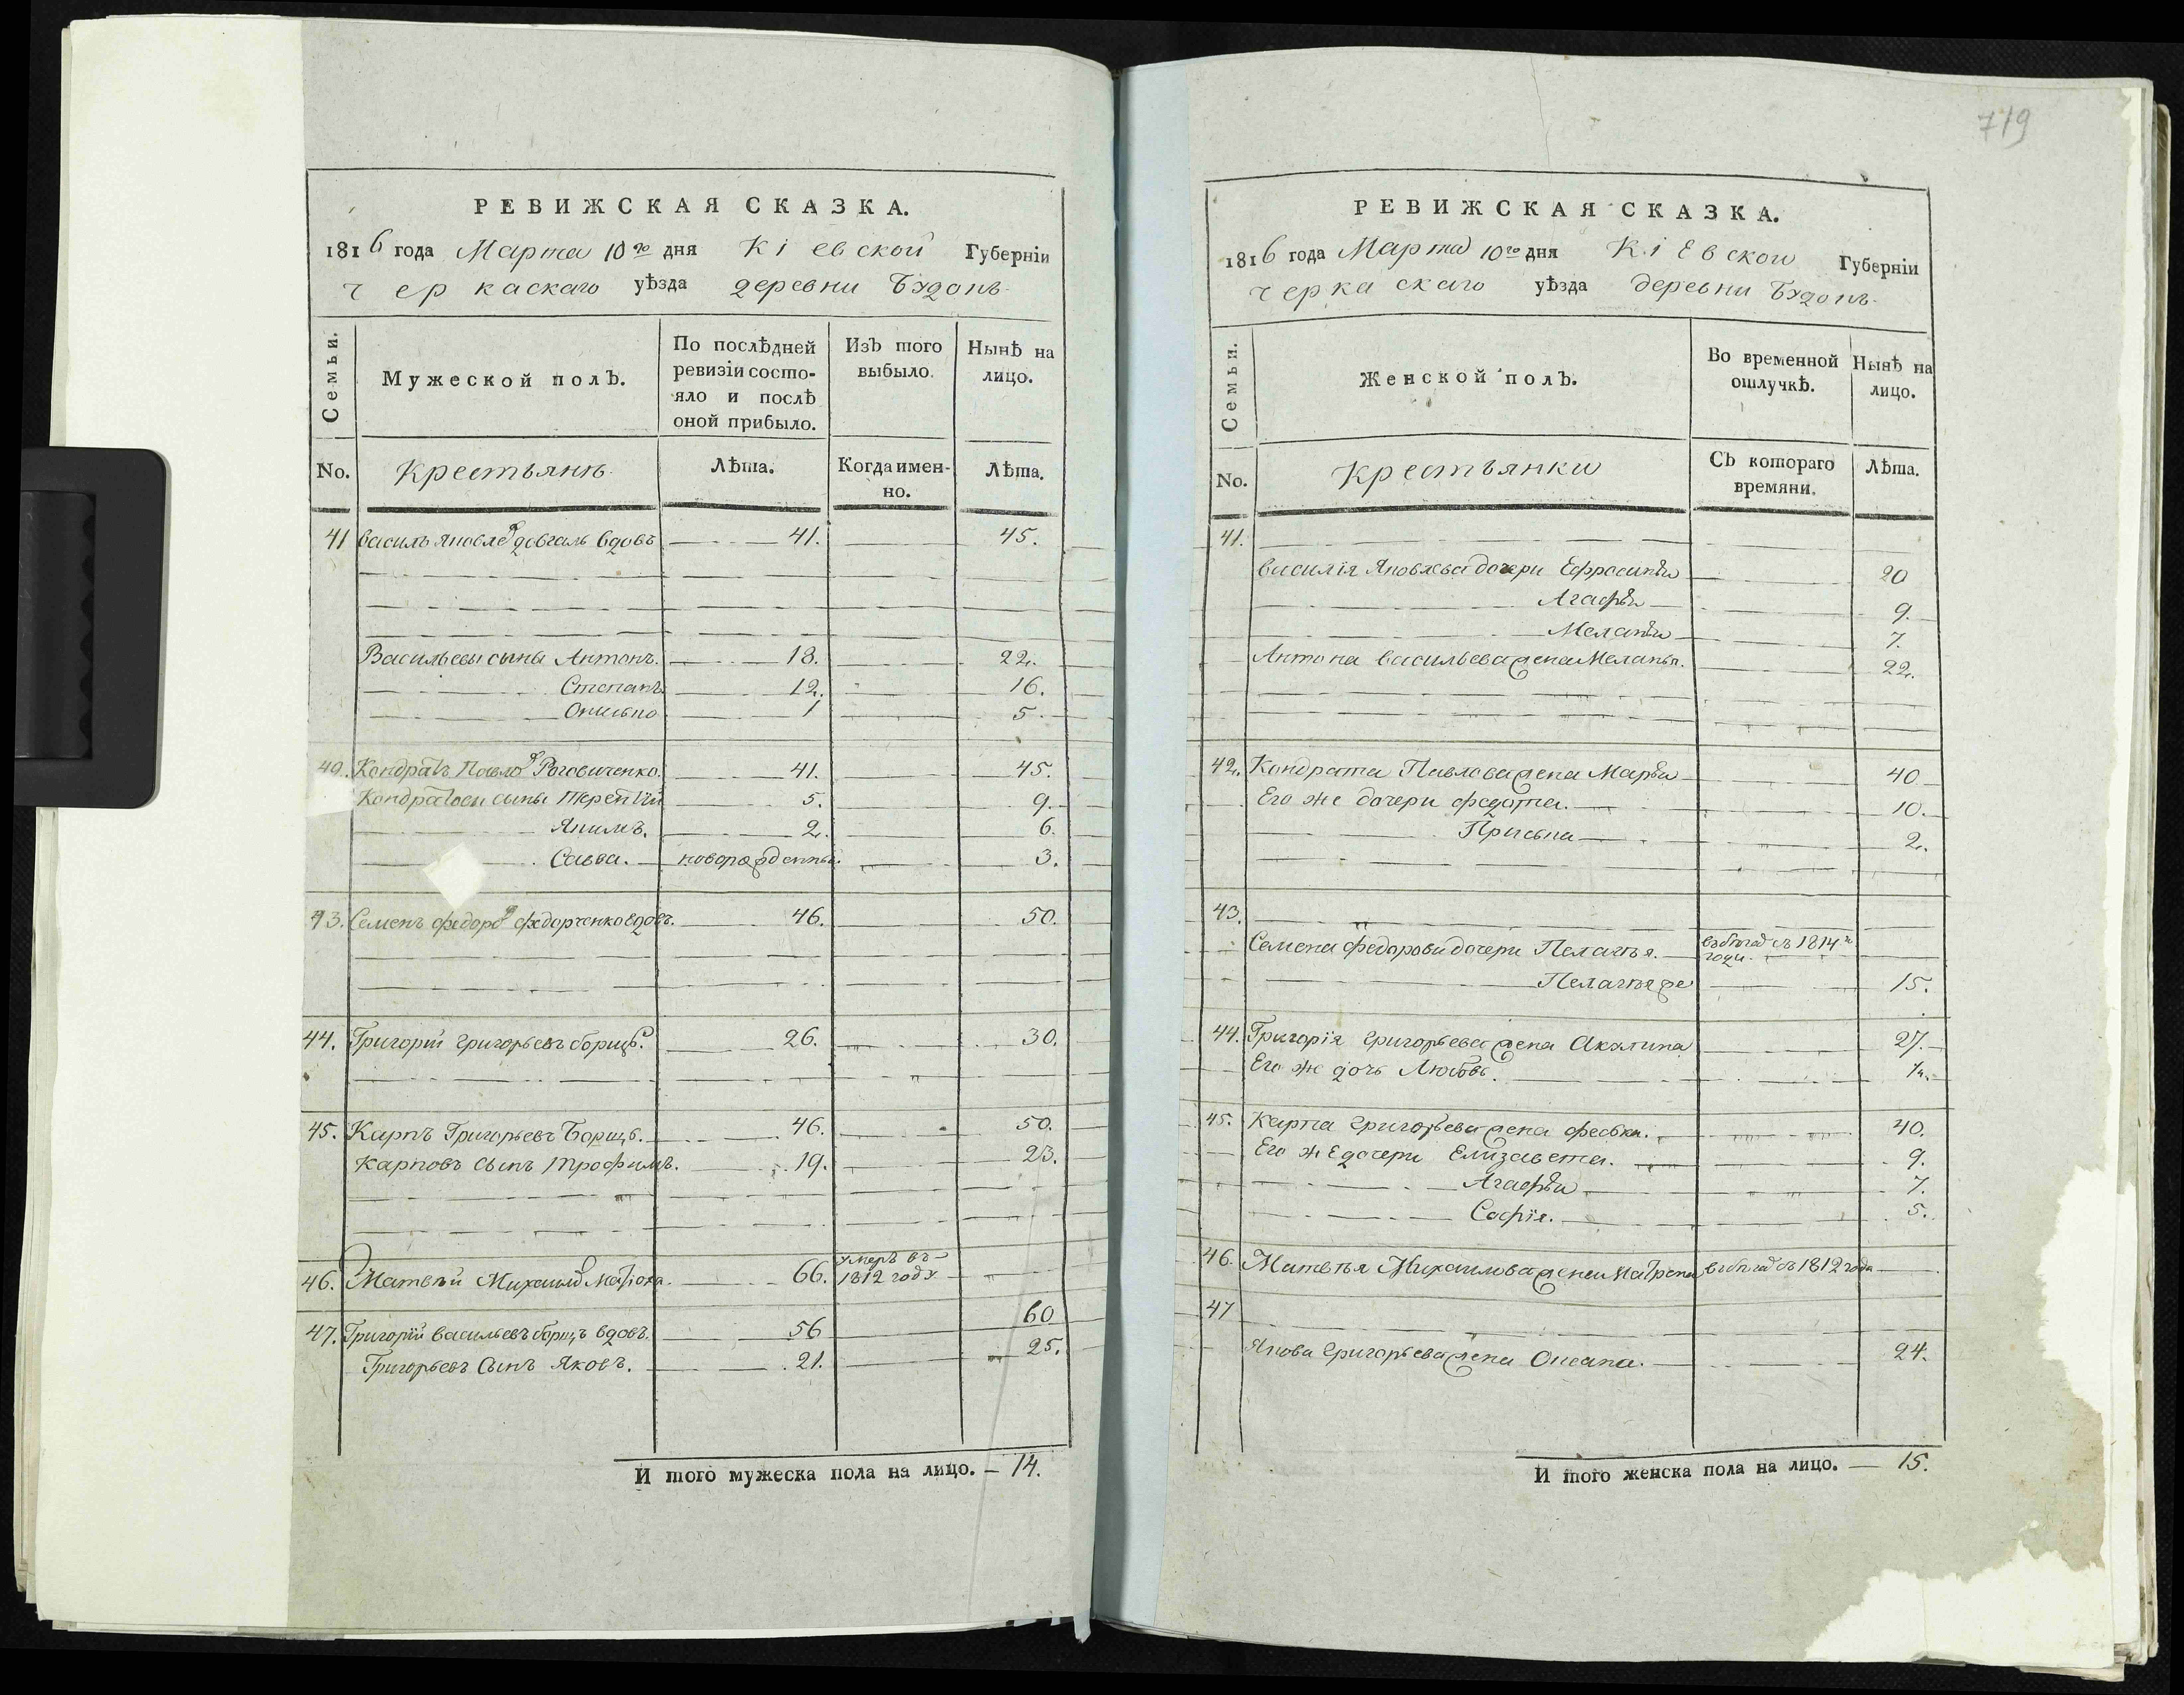 РЕВИЖСКАЯ СКАЗКА.
1816 года Марта 10го дня Кіевской Губерніи
черкаскаго уѣзда деревни Будокъ
Семьи.
Мужеской полЪ.
По послѣдней ревизіи состо-
яло и послѣ
оной прибыло.
ИзЪ того
выбыло.
Нынѣ на
лицо.
No. Крестьянъ Лѣта. Когда имен-
но.
Лѣта.
41 василь яковлев довгаль вдовъ 41. 45.
Васильевы сыны Антонъ. 18. 22.
Степанъ 12. 16.
1 5.
42. Кондратъ Павлов Роговиченко. 41. 45.
Кондратовы сыны Терентій 5. 9.
Якимъ. 2. 6.
Савва. новорожденный. 3.
43. Семенъ федоров федорченко вдовъ. 46. 50.
44. Григорій григорьевъ борщъ. 26. 30.
45. Карпъ Григорьевъ Борщъ. 46. 50.
Карповъ сынъ трофимъ. 19. 23.
46. Матвѣй Михаилов 66. умеръ въ
1812 году
47. Григорій васильевъ борщъ вдовъ. 56 60
Григорьевъ сынъ яковъ. 21. 25.
И того мужеска пола на лицо. — 14.
719
РЕВИЖСКАЯ СКАЗКА.
1816 года Марта 10го дня Кіевской Губерніи
черкаскаго уѣзда деревни Будокъ
Семьи.
Женской полЪ.
Во временной
отлучкѣ.
Нынѣ на
лицо.
No. Крестьянки СЪ котораго
времяни.
Лѣта.
41.
василія Яковлева дочери Ефросинья 20
Агафья 9.
Меланья 7.
Антона васильева жена Меланья. 22.
42. Кондрата Павлова жена Марья 40
Его же дочери федота. 10.
Приська 2.
43.
Семена федорова дочери Пелагѣя. въ бѣгах съ 1814го
года.
Пелагѣя же 15.
44. Григорія григорьева жена Акулина 27.
Его же дочь Любовь.
45. Карпа григорьева жена феська. 40.
Его же дочери Елизавета. 9.
Агафья 7.
Софія. 5.
46. Матвѣя Михаилова жена Матрена въ бѣгах съ 1812 года
47
Якова григорьева жена Оксана. 24.
И того женска пола на лицо. — 15.